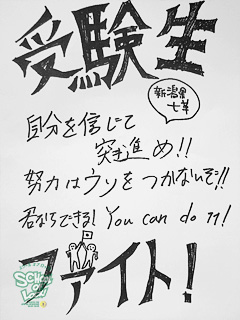 受験生
新潟星
自分を信じて
突き進め!!
努力はウソをつかないぞ!!
君ならできる! You can do it!
ファイト!
SCHOOL
OF
LOCK!